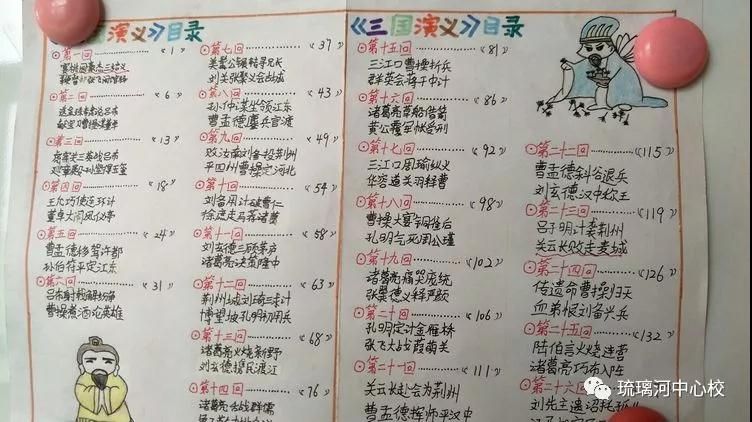 国演义》目录
第一回 《1》
宴桃园豪杰三结义
第二回 6》
第三回 《13》
第四回 18》
王允巧使连环计
董卓大闹凤仪亭
第五回 24》
曹孟德移驾许都
孙伯符平定江东
第六回 31》
曹操煮酒论英雄
第七回 37》
美髯公辗转寻兄长
刘关张聚义会古城
第八回 《43》
孙仲谋坐领江东
曹孟德鏖兵官渡
第九回 《49》
败汝南刘备投荆州
平四州曹操定河北
第十回 《54》
刘备用计破曹仁
徐庶走马荐诸葛
第十一回 《58》
刘玄德三顾茅庐
诸葛亮决策隆中
第十二回 《63
荆州城刘琦三求计
博望坡孔明初用兵
第十三回 《68
诸葛亮火烧新野
刘玄德携民渡江
第十四回 《76
诸葛亮舌战群儒
《三国演义》目录
第十五回 《81》
三江口曹操折兵
群英会蒋干中计
第十六回 《86
诸葛亮草船借箭
黄公覆军帐受刑
第十七回 《92》
三江口周瑜纵火
华容道关羽释曹
第十八回 《98》
曹操大宴铜雀台
孔明气死周公瑾
第十九回 《102》
诸葛亮痛哭庞统
张翼德义释严颜
第二十回 《106》
孔明定计金雁桥
张飞大战葭萌关
第二十一回 《111》
关云长赴会为荆州
曹孟德挥师平汉中
第二十二回 《115》
曹孟德斜谷退兵
刘玄德汉中称王
第二十三回 《119
吕子明计袭荆州
关云长败走麦城
第二十四回 《126
传遗命曹操归天
血弟恨刘备兴兵
第二十五回 《132
陆伯言火烧连营
诸葛亮巧布八阵
第二十六回
刘先主遗诏托孤
琉璃河中心校